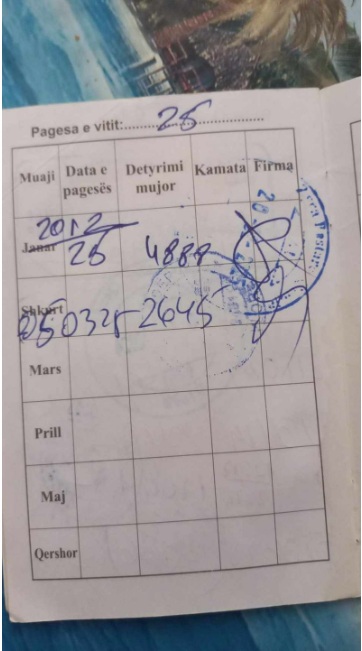 Pagesa e vitit:..........25..........
Muaji Data e pagesës Detyrimi mujor Kamata Firma
2012
Janar 25 4888
Shkurt 250325 2645
Mars
Prill
Maj
Qershor